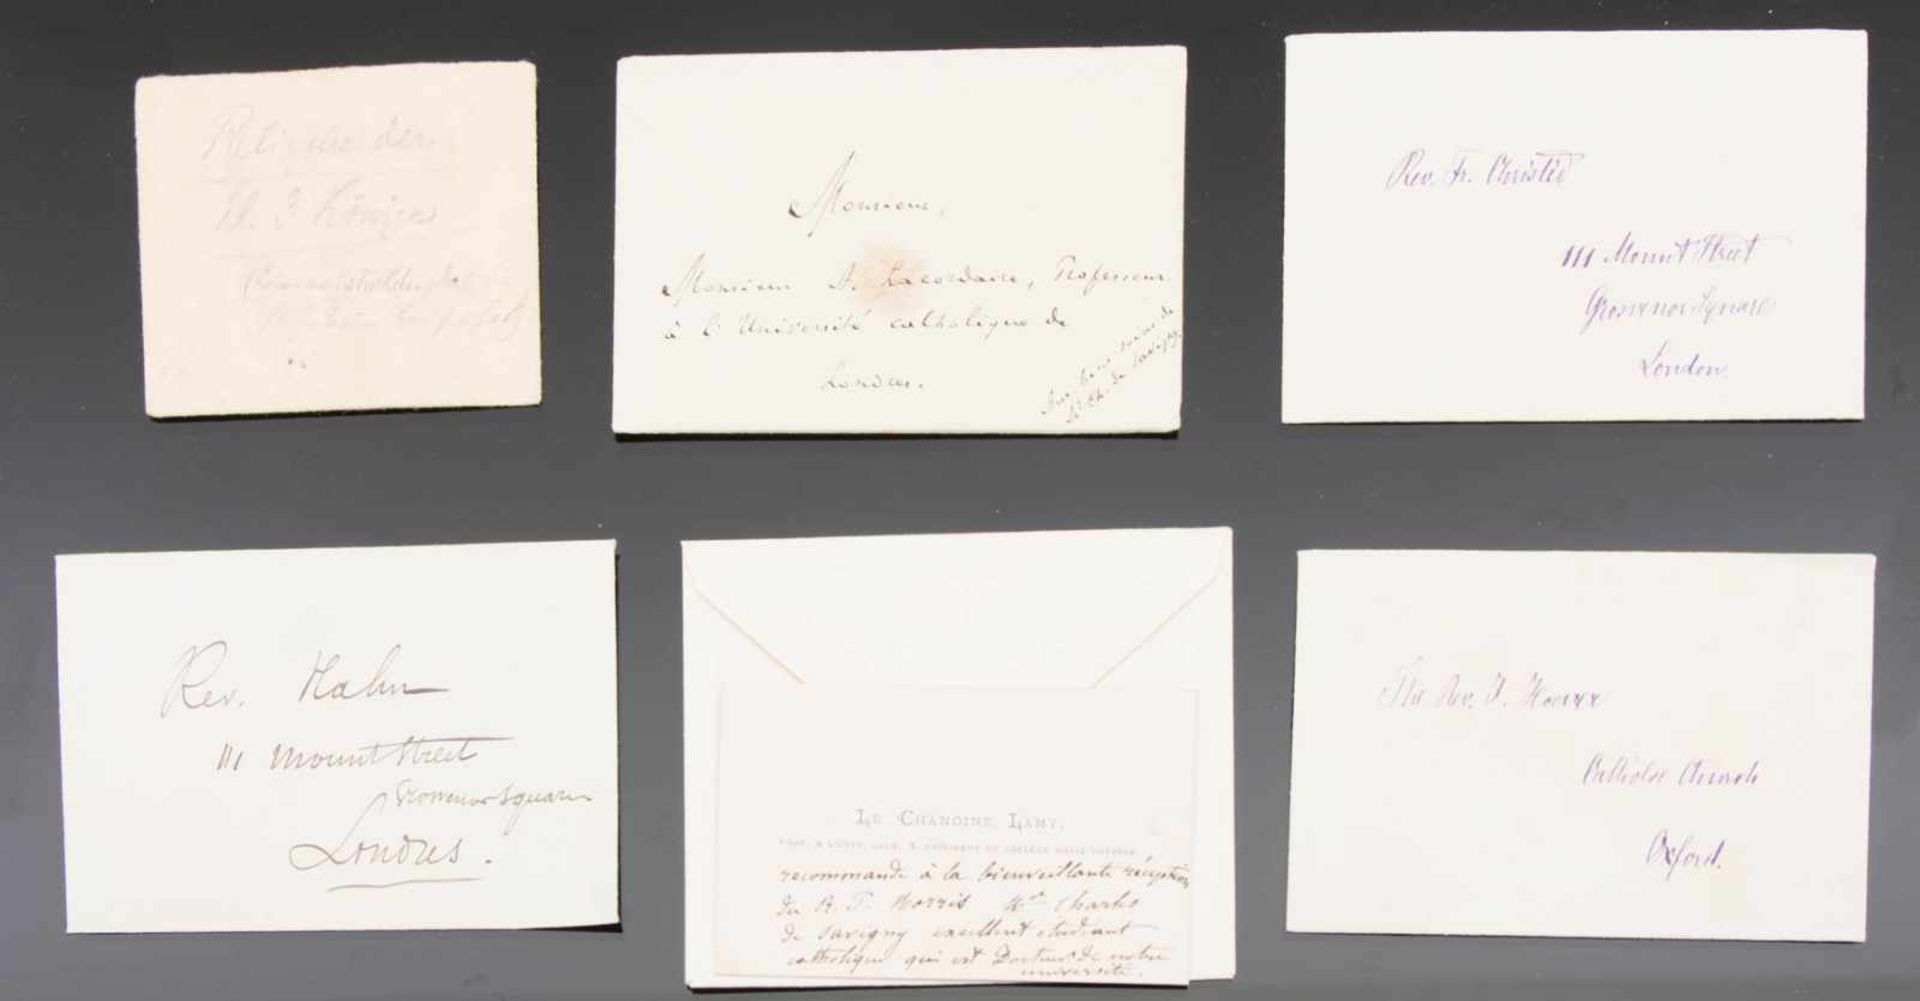 Reliquie der
Hl. 3 Könige
Monsieur,
Monsieur A. Lacordaire, Professeur
à l'Université catholique de
Londres.
Aux bons soins de
Mr Ch. de Savigny.
Rev. Fr. Christie
111 Mount Street
Grosvenor Square
London
Rev. Hahn
111 Mount Street
Grosvenor Square
Londres.
Le Chanoine Lamy,
recommande à la bienveillante réception
du R. P. Morris Mr Charles
de Savigny excellent étudiant
catholique qui est Docteur de notre
université.
The Rev. J.
Catholic Church
Oxford.